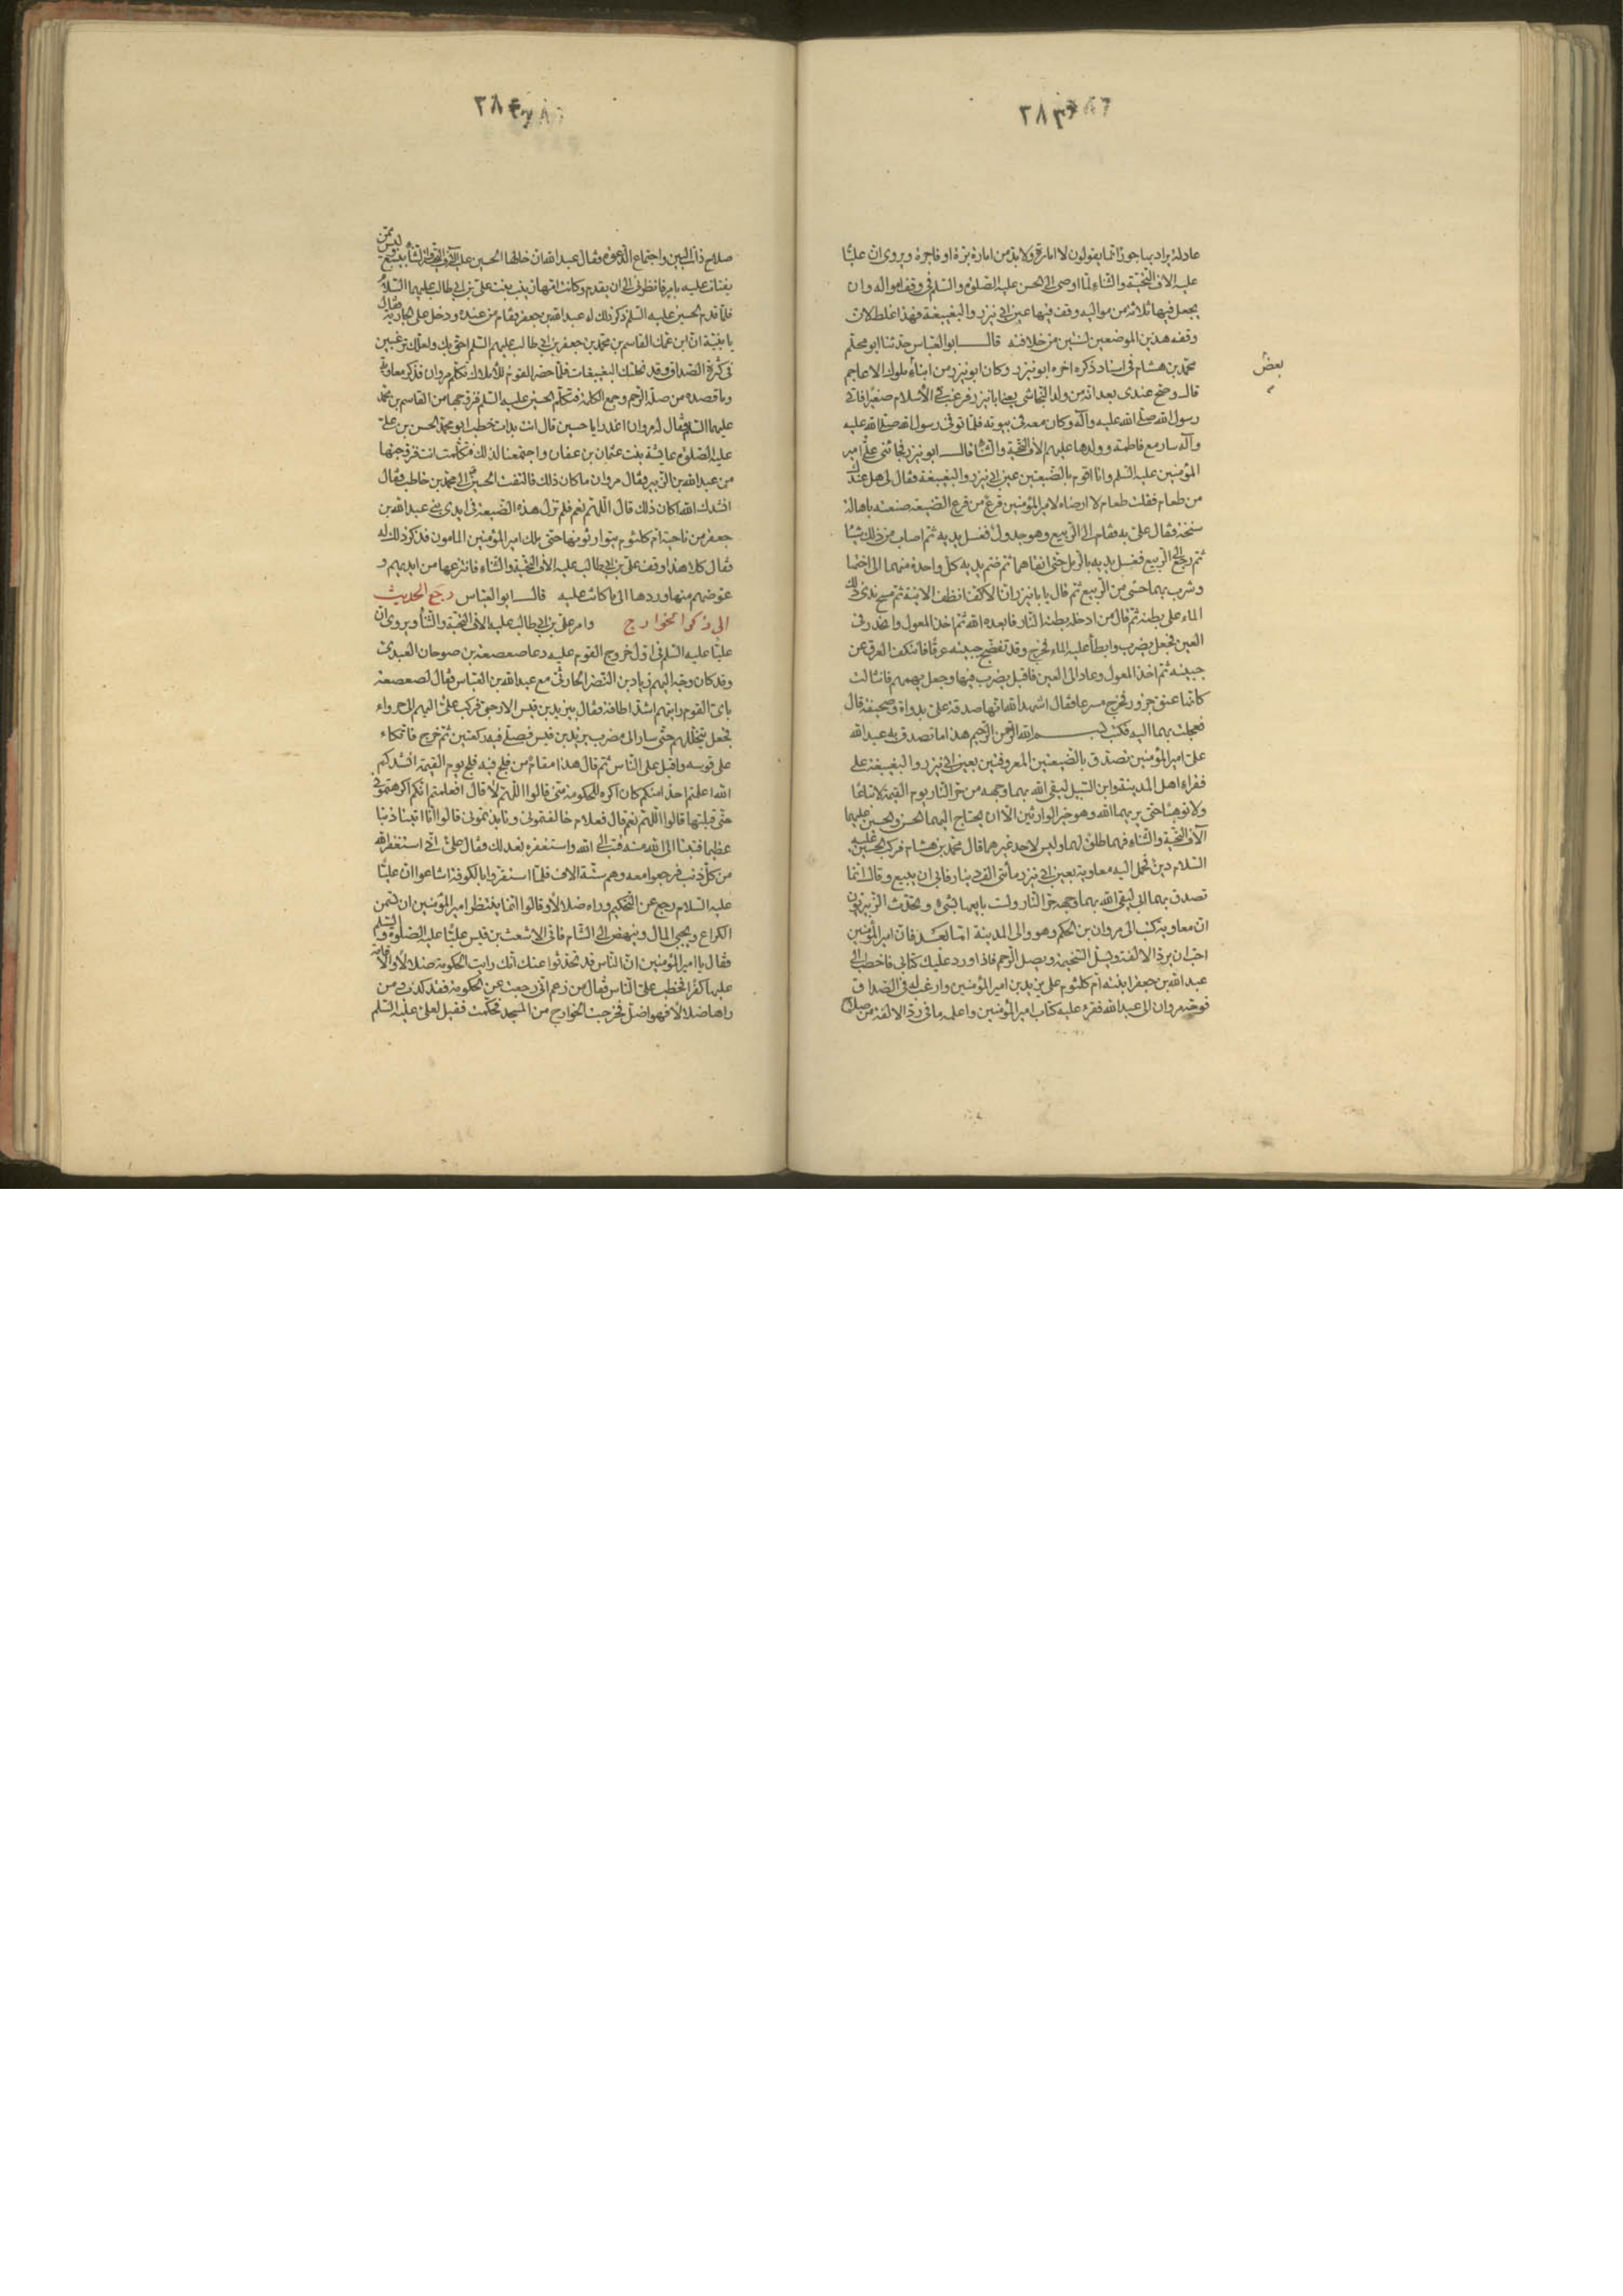 ٢٨٣
عادلة يراد بها جور انما يقولون لا امارة ولا بد من امارة برة او فاجرة ويروى ان عليا
عليه الاف التحية والثناء لما اوصى الى الحسن عليه الصلوة والسلم فى وقف امواله وان
يجعل فيها ثلاثة من مواليه وقف فيها عين ابى نيزر والبغيبغة فهذا غلط لان
وقفه هذين الموضعين لسنتين من خلافته قال ابو العباس حدثنا ابو محلم
بعض
محمد بن هشام فى اسناد ذكره اخره ابو نيزر وكان ابو نيزر من ابناء ملوك الاعاجم
قال وصح عندى بعد انه من ولد النجاشى يعنى ابا نيزر فرغب فى الاسلام صغيرا فاتى
رسول الله صلى الله عليه وآله وكان معه فى بيوته فلما توفى رسول الله صلى الله عليه
وآله سار مع فاطمة وولدها عليهم الاف التحية والثنا قال ابو نيزر فجائنى على امير
المؤمنين عليه السلم وانا اقوم بالضيعتين عين ابى نيزر والبغيبغة فقال لى هل عندك
من طعام فقلت طعام لا ارضاه لامير المؤمنين قرع من قرع الضيعة صنعته باهالة
سنخة فقال على به فقام الى الربيع وهو جدول فغسل يديه ثم اصاب من ذلك شيئا
ثم رجع الى الربيع فغسل يديه بالرمل حتى انقاهما ثم ضم يديه كل واحدة منهما الى اختها
وشرب بهما حسى من الربيع ثم قال يا با نيزر ان الاكف انظف الانية ثم مسح ندى ذلك
الماء على بطنه ثم قال من ادخله بطنه النار فابعده الله ثم اخذ المعول وانحدر فى
العين فجعل يضرب وابطأ عليه الماء فخرج وقد تفضج جبينه عرقا فانتكف العرق عن
جبينه ثم اخذ المعول وعاد الى العين فاقبل يضرب فيها وجعل يهمهم فانثالت
كانها عنق جزور فخرج مسرعا فقال اشهد الله انها صدقة على بدواة وصحيفة قال
فعجلت بهما اليه فكتب بسم الله الرحمن الرحيم هذا ما تصدق به عبد الله
على امير المؤمنين تصدق بالضيعتين المعروفتين بعين ابى نيزر والبغيبغة على
فقراء اهل المدينة وابن السبيل ليقى الله بهما وجهه من حر النار يوم القيمة لا تباعا
ولا توهبا حتى يرثهما الله وهو خير الوارثين الا ان يحتاج اليهما الحسن والحسين عليهما
الآف التحية والثناء فهما طلق لهما وليس لاحد غيرهما قال محمد بن هشام فركب الحسين عليه
السلام دين فحمل اليه معاوية بعين ابى نيزر مأتى الف دينار فابى ان يبيع وقال انما
تصدق بهما ابى ليقى الله بهما وجهه حر النار ولست بايعها بشىء وتحدث الزبيريون
ان معاوية كتب الى مروان بن الحكم وهو والى المدينة اما بعد فان امير المؤمنين
احب ان يرد الالفة ويسل السخيمة ويصل الرحم فاذا ورد عليك كتابى فاخطب الى
عبد الله بن جعفر ابنته ام كلثوم على يزيد بن امير المؤمنين وارغب له فى الصداق
فوجه مروان الى عبد الله فقرء عليه كتاب امير المؤمنين واعلمه ما فى رد الالفة من صلاح
٢٨٤
صلاح ذات البين واجتماع الدعوة فقال عبد الله ان خالها الحسين عليه الآف التحية والثنا بينبع وليس ممن
يفتات عليه بامر فانظرنى الى ان يقدم وكانت امها زينب بنت على بن ابى طالب عليهما السلام
فلما قدم الحسين عليه السلم ذكر ذلك له عبد الله بن جعفر فقام من عنده ودخل على الجارية فقال
يا بنية ان ابن عمك القاسم بن محمد بن جعفر بن ابى طالب عليهم السلم احق بك ولعلك ترغبين
فى كثرة الصداق وقد نحلتك البغيبغات فلما حضر القوم للاملاك تكلم مروان فذكر معاوية
وما قصده من صلة الرحم وجمع الكلمة فتكلم الحسين عليه السلم فزوجها من القاسم بن محمد
عليهما السلام فقال له مروان اغدرا يا حسين قال انت بدات خطب ابو محمد الحسن بن على
عليه الصلوة عايشة بنت عثمان بن عفان واجتمعنا لذلك فتكلمت انت فزوجتها
من عبد الله بن الزبير فقال مروان ما كان ذلك فالتفت الحسين الى محمد بن حاطب فقال
انشدك الله اكان ذلك قال اللهم نعم فلم تزل هذه الضيعة فى ايدى بنى عبد الله بن
جعفر من ناحية ام كلثوم يتوارثونها حتى ملك امير المؤمنين المامون فذكر ذلك له
فقال كلا هذا وقف على بن ابى طالب عليه الاف التحية والثناء فانتزعها من ايديهم و
عوضهم منها وردها الى ما كانت عليه قال ابو العباس رجع الحديث
الى ذكر الخوارج وامر على بن ابى طالب عليه الاف التحية والثنأ ويروى ان
عليا عليه السلم فى اول خروج القوم عليه دعا صعصعة بن صوحان العبدى
وقد كان وجهه اليهم زياد بن النضر الحارثى مع عبد الله بن العباس فقال لصعصعة
باى القوم رايتهم اشد اطافة فقال بيزيد بن قيس الارحبى فركب على اليهم الى حرواء
فجعل يتخللهم حتى سار الى مضرب يزيد بن قيس فصلى فيه ركعتين ثم خرج فاتكاء
على قوسه واقبل على الناس ثم قال هذا مقام من فلج فيه فلج يوم القيمة انشدكم
الله اعلمتم احدا منكم كان اكره للحكومة منى قالوا اللهم لا قال افعلمتم انكم اكرهتمونى
حتى قبلتها قالوا اللهم نعم قال فعلام خالفتمونى ونابذتمونى قالوا انا اتينا ذنبا
عظيما فتبنا الى الله منه فتب الى الله واستغفره نعد لك فقال على انى استغفر الله
من كل ذنب فرجعوا معه وهم ستة الاف فلما استقروا بالكوفة اشاعوا ان عليا
عليه السلام رجع عن التحكيم وراه ضلالا وقالوا انما ينتظر امير المؤمنين ان تسمن
الكراع ويجبى المال وينهض الى الشام فاتى الاشعث بن قيس عليا عليه الصلوة والسلم
فقال يا امير المؤمنين ان الناس قد تحدثوا عنك انك رايت الحكومة ضلالا والاقامة
عليها كفرا فخطب على الناس فقال من زعم انى رجعت عن الحكومة فقد كذب ومن
راها ضلالا فهو اضل فخرجت الخوارج من المسجد فحكمت فقيل لعلى عليه السلم